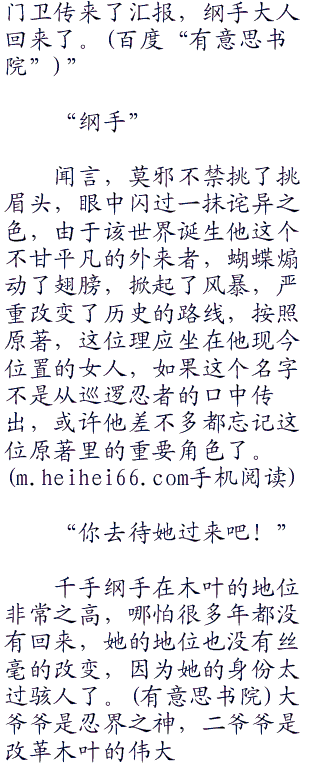 门卫传来了汇报，纲手大人
回来了。(百度“有意思书
院”)”
“纲手”
闻言，莫邪不禁挑了挑
眉头，眼中闪过一抹诧异之
色，由于该世界诞生他这个
不甘平凡的外来者，蝴蝶煽
动了翅膀，掀起了风暴，严
重改变了历史的路线，按照
原著，这位理应坐在他现今
位置的女人，如果这个名字
不是从巡逻忍者的口中传
出，或许他差不多都忘记这
位原著里的重要角色了。
(m.heihei66.com手机阅读)
“你去待她过来吧！”
千手纲手在木叶的地位
非常之高，哪怕很多年都没
有回来，她的地位也没有丝
毫的改变，因为她的身份太
过骇人了。(有意思书院)大
爷爷是忍界之神，二爷爷是
改革木叶的伟大